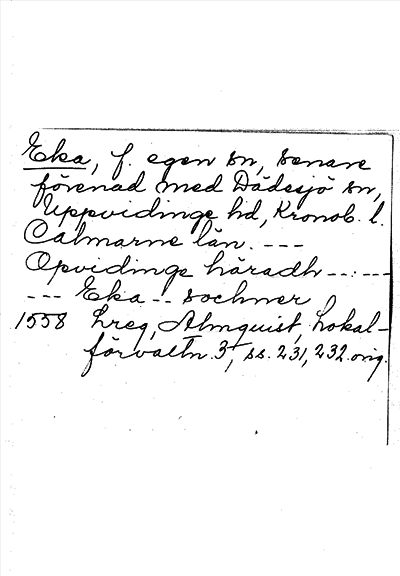 Eka, f. egen sn, senare
förenad med Dädesjö sn,
Uppvidinge hd, Kronob. l.
Calmarne län. ---
Opvidinge häradh -- ---
--- Eka -- sochner
1558 Lreg, Almquist, Lokal-
förvaltn. 3, ss. 231, 232. orig.